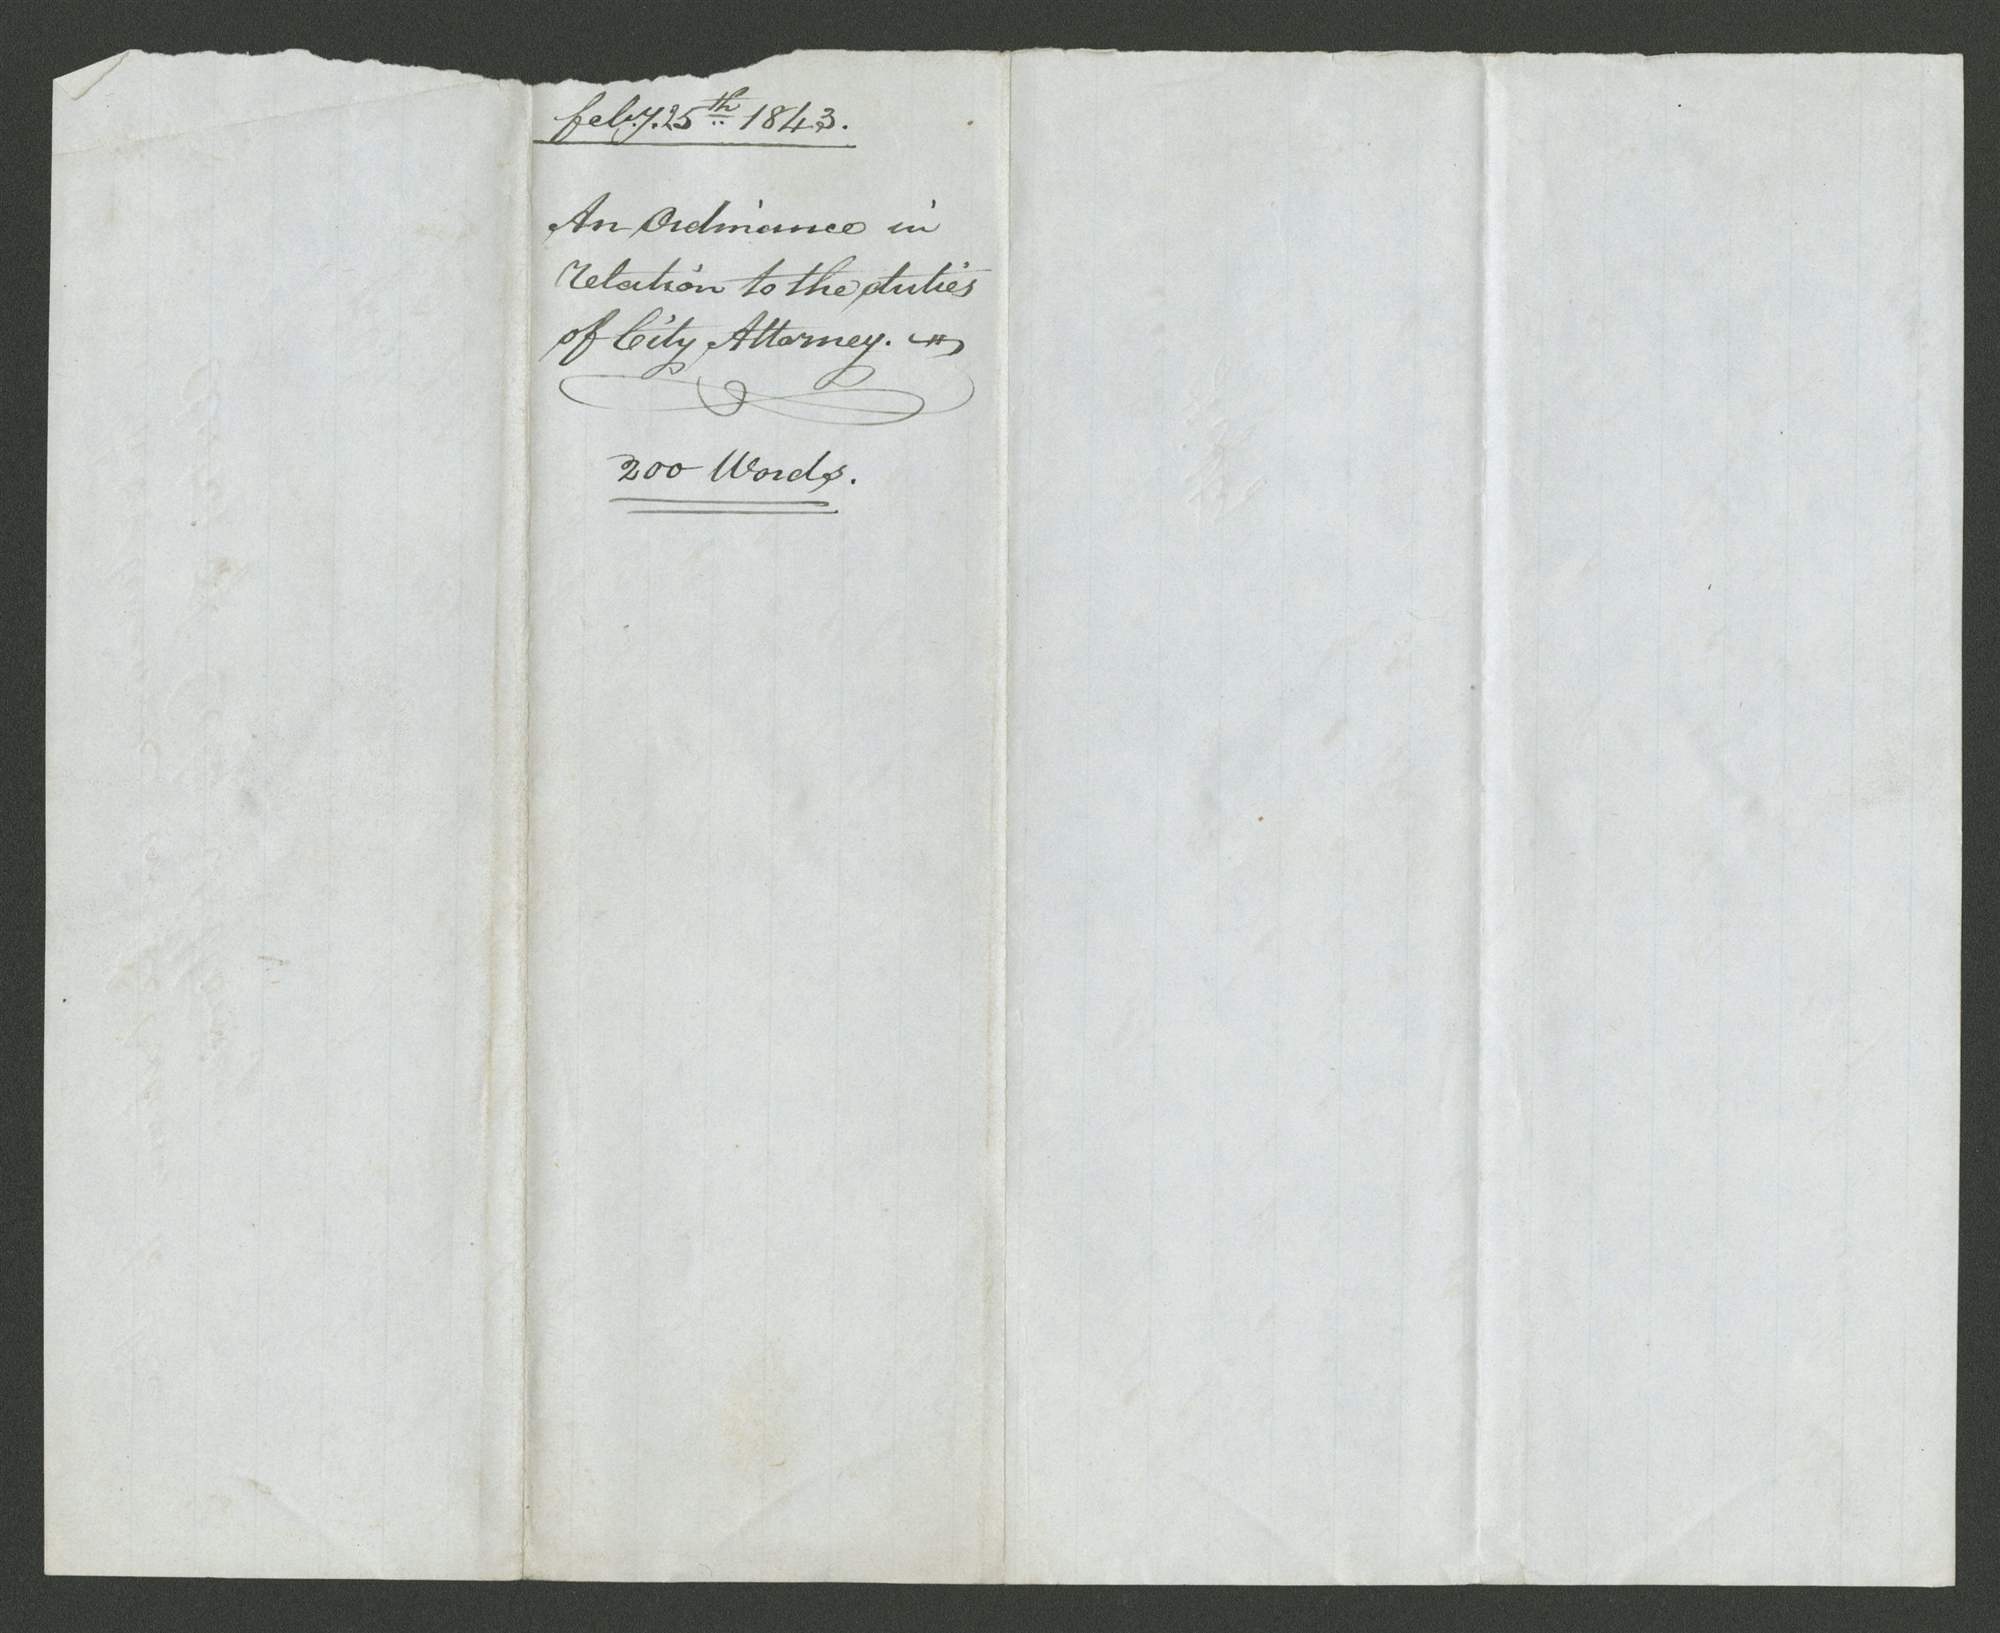 feby. 25th 1843.
An Ordinance in
relation to the duties
of City Attorney.
200 Words.